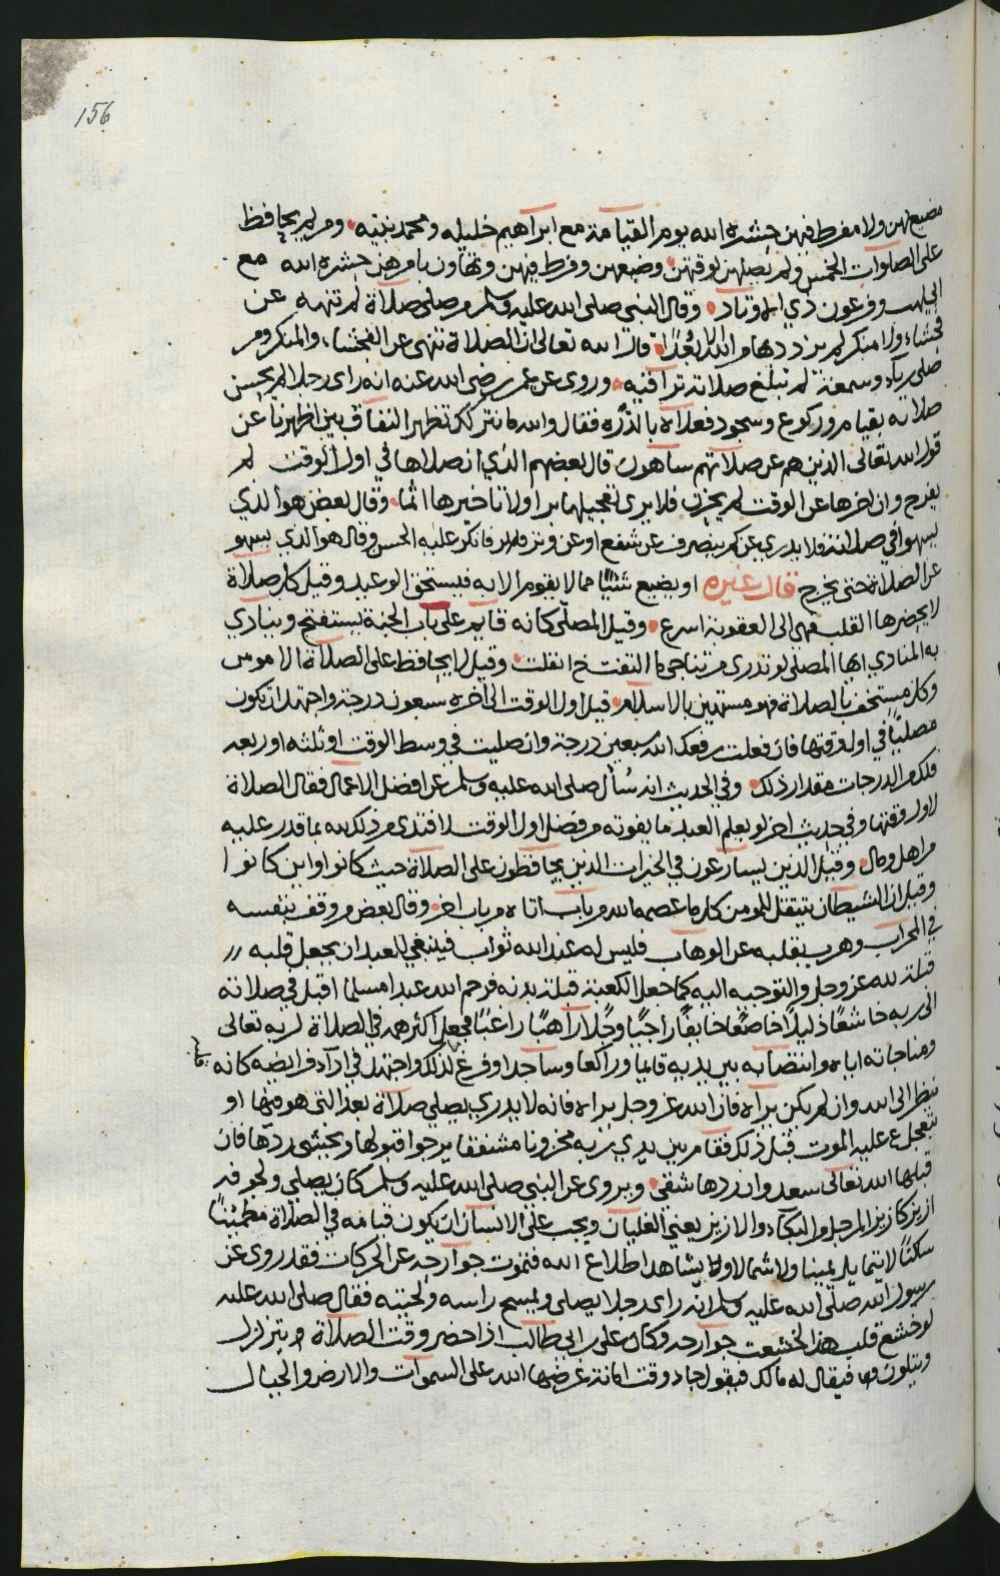 156
مضيع لهن ولا مفرط فيهن حشره الله يوم القيامة مع ابراهيم خليله ومحمد نبيه ومن لم يحافظ
على الصلوات الخمس ولم يصلهن لوقتهن وضيعهن وفرط فيهن وتهاون بامرهن حشره الله مع
ابي لهب وفرعون ذي الاوتاد وقال النبي صلى الله عليه وسلم من صلى صلاة لم تنهه عن
فحشاء ولا منكر لم يزدد بها من الله الا بُعْدًا قال الله تعالى ان الصلاة تنهى عن الفحشاء والمنكر ومن
صلى رياء وسمعة لم تبلغ صلاته تراقيه وروي عن عمر رضي الله عنه انه راى رجلا لم يحسن
صلاته بقيام وركوع وسجود فعلاه بالدرّه فقال والله ما نتركك تظهر النفاق بين اظهرنا عن
قول الله تعالى الذين هم عن صلاتهم ساهون قال بعضهم الذي ان صلاها في اول الوقت لم
يفرح وان اخرها عن الوقت لم يحزن فلا يرى تعجيلها برا ولا تاخيرها اثما وقال بعض هو الذي
يسهوا في صلاته فلا يدري عن كم ينصرف عن شفع او عن وتر فانكر عليه الحسن وقال هو الذي يسهو
عن الصلاة حتى تخرج قال غيره او يضيع شيئًا مما لا يقوم الا به فيستحق الوعيد وقيل كل صلاة
لا يحضرها القلب فهي الى العقوبة اسرع وقيل المصلي كانه قايم على باب الجنة يستفتح وينادي
به المنادي ايها المصلي لو تدري من تناجي ما التفت انفتلت وقيل لا يحافظ على الصلاة الا مومن
وكل مستخف بالصلاة فهو مستهين بالاسلام قيل اول الوقت الى اخره سبعون درجة واجتهد ان تكون
مصليًا في اول وقتها فان فعلت رفعك الله سبعين درجة وان صليت في وسط الوقت او ثلثه او ربعه
فلك من الدرجات مقدار ذلك وفي الحديث انه سُأل صلى الله عليه وسلم عن افضل الاعمال فقال الصلاة
لاول وقتها وفي حديث اخر لو يعلم العبد ما يفوته من فضل اول الوقت لافتدى من ذلك بما قدر عليه
من اهل ومال وقيل الذين يسارعون في الخيرات الذين يحافظون على الصلاة حيث كانوا واين كانوا
وقيل ان الشيطان للمومن كل ما عصمه الله من باب اتاه من باب اخر وقال بعض من وقف بنفسه
في المحراب وهرب بقلبه عن الوهاب فليس له عند الله ثواب فينبغي للعبد ان يجعل قلبه
قبلة لله عز وجل والتوجيه اليه كما جعل الكعبة قبلة بدنه فرحم الله عبدا مسلما اقبل في صلاته
الى ربه خاشعًا ذليلًا خاضعًا خايفًا راجيًا وجلًا راهبًا راغبًا فجعل اكثر همه في الصلاة لربه تعالى
ومناجاته اياه وانتصابه بين يديه قايما وراكعا وساجدا وفرغ لذلك واجتهد في اداء فرايضه كانه
ينظر الى الله وان لم يكن يراه فان الله عز وجل يراه فانه لا يدري يصلي صلاة بعد التي هو فيها او
عليه الموت قبل ذلك فقام بين يدي ربه محزونا مشفقا يرجوا قبولها ويخشى ردها فان
قبلها الله تعالى سعد وان ردها شقي ويروى عن النبي صلى الله عليه وسلم كان يصلي ولجوفه
ازيز كازيز المرجل والبكاء والازيز يعني الغليان ويجب على الانسان ان يكون قيامه في الصلاة مطمئنًا
ساكنًا لا يتمايل يمينا ولا شمالا اطلاع الله فتموت جوارحه عن الحركات فقد روي عن
رسول الله صلى الله عليه وسلم انه راى رجلا يصلي ويمسح راسه ولحيته فقال صلى الله عليه
لو خشع قلب هذا لخشعت جوارحه وكان علي بن ابي طالب اذا حضر وقت الصلاة يتزلزل
ويتلون فيقال له مالك فيقول جاء وقت امانة عرضها الله على السموات والارض والجبال